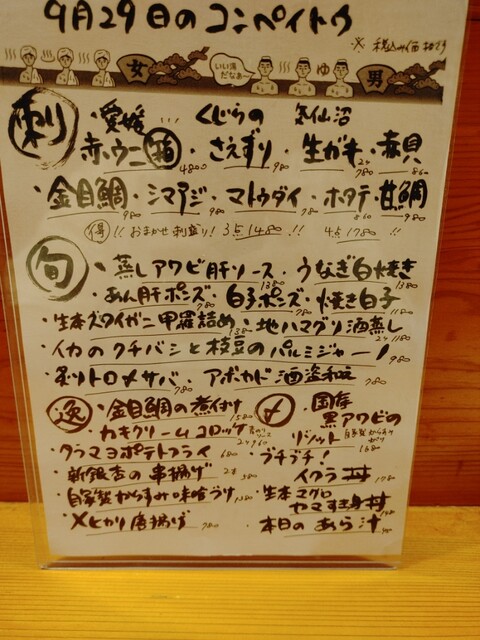 9月29日のコンペイトウ
※税込み価格です
女 いい湯だなぁ〜 ゆ 男
刺 ・愛媛 赤ウニ(箱) 4800 くじらの さえずり 980 気仙沼 生ガキ 2ヶ 780 ・赤貝 860
・金目鯛 980 ・シマアジ 980 ・マトウダイ 780 ・ホタテ 860 ・甘鯛 980
得!! おまかせ刺盛り! 3点1480 !! 4点1780 !!
旬 ・蒸しアワビ肝ソース 1380 ・うなぎ白焼き 1380
・あん肝ポンズ 780 ・白子ポンズ 780 ・焼き白子 1180
・生本ズワイガニ甲羅詰め 1380 ・地ハマグリ酒蒸し 2ヶ 1180
・イカのクチバシと枝豆のパルミジャーノ 980
・炙りトロ〆サバ 780 ・アボカド酒盗和え 780
逸 ・金目鯛の煮付け 1580
・カキクリームコロッケ 2ヶ 960
・タラマヨポテトフライ 680
・新銀杏の串揚げ 2本 580
・自家製からすみ味噌づけ 1380
・メヒカリ唐揚げ 780
〆 ・国産黒アワビのリゾット 1680
・プチプチ!イクラ丼
・生本マグロヤマすき身丼
・本日のあら汁